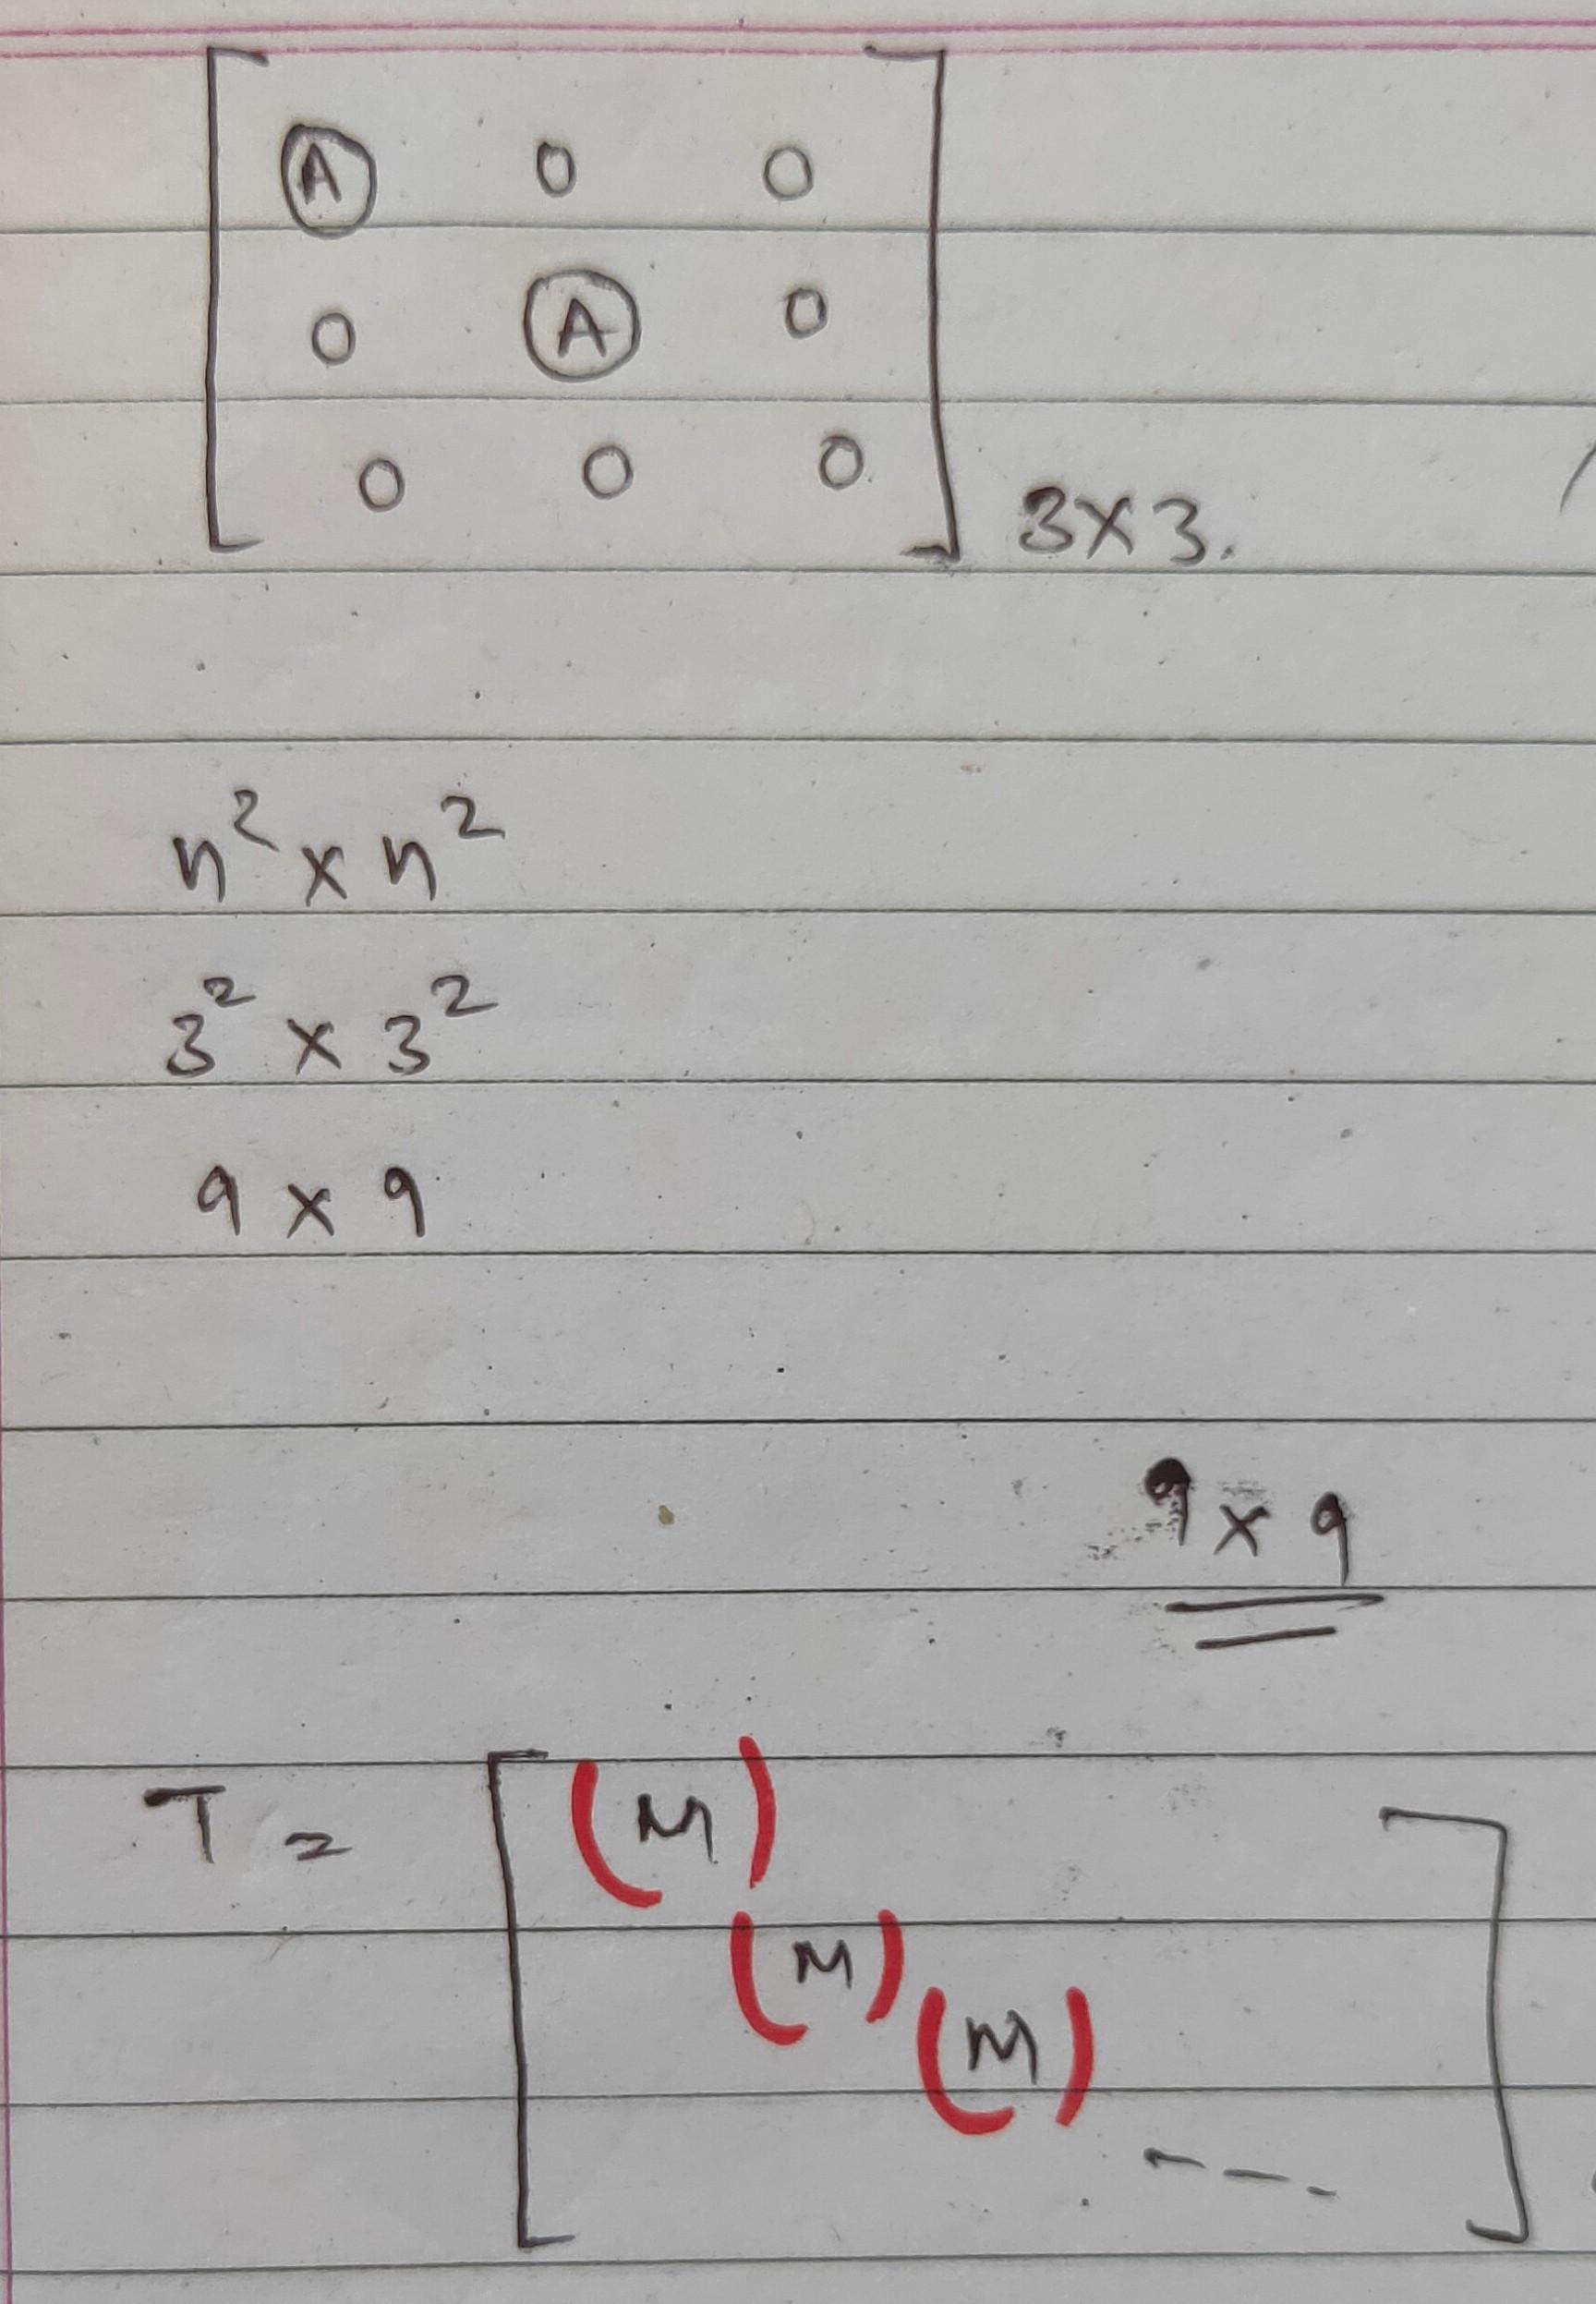 A 0 0
0 A 0
0 0 0
3×3.
n² × n²
3² × 3²
9 × 9
9 × 9
T = (M)
(M)
(M)
---